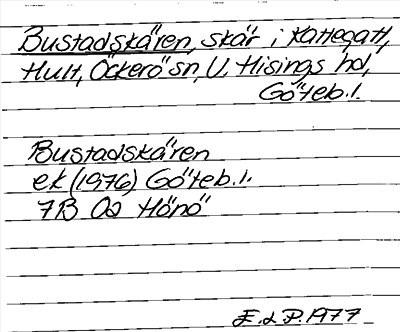 Bustadskären, skär i Kattegatt,
Hult, Öckerö sn, V. Hisings hd,
Göteb. l.
Bustadskären
ek (1976) Göteb. l.
7B 0a Hönö
E. d P. 1977